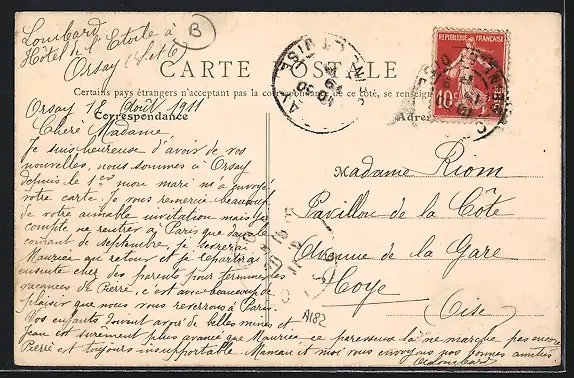 Lombard
Hôtel de l'Etoile à
Orsay (S et O)
B
CARTE POSTALE
Certains pays étrangers n'acceptant pas la correspondance de ce côté, se renseign
Correspondance
Adre
REPUBLIQUE FRANÇAISE
10
POSTES
Orsay 12 Août 1911
Chère Madame,
Je suis heureuse d'avoir de vos
nouvelles, nous sommes à Orsay
depuis le 1er mon mari m'a envoyé
votre carte. Je vous remercie beaucoup
de votre aimable invitation mais je
compte ne rentrer à Paris que dans le
courant de septembre, je verrai
Maurice qui retour et je repartirai
ensuite chez des parents pour terminer les
vacances de Pierre, c'est avec beaucoup de
plaisir que nous vous reverrons à Paris.
Vos enfants doivent avoir de belles mines et
Jean est sûrement plus avancé que Maurice, ce paresseux là ne marque pas encore
Pierre est toujours insupportable. Maman et moi vous envoyons nos bonnes amitiés
Lombard
Madame Riom
Pavillon de la Côte
Avenue de la Gare
Noye
(Oise)
A182